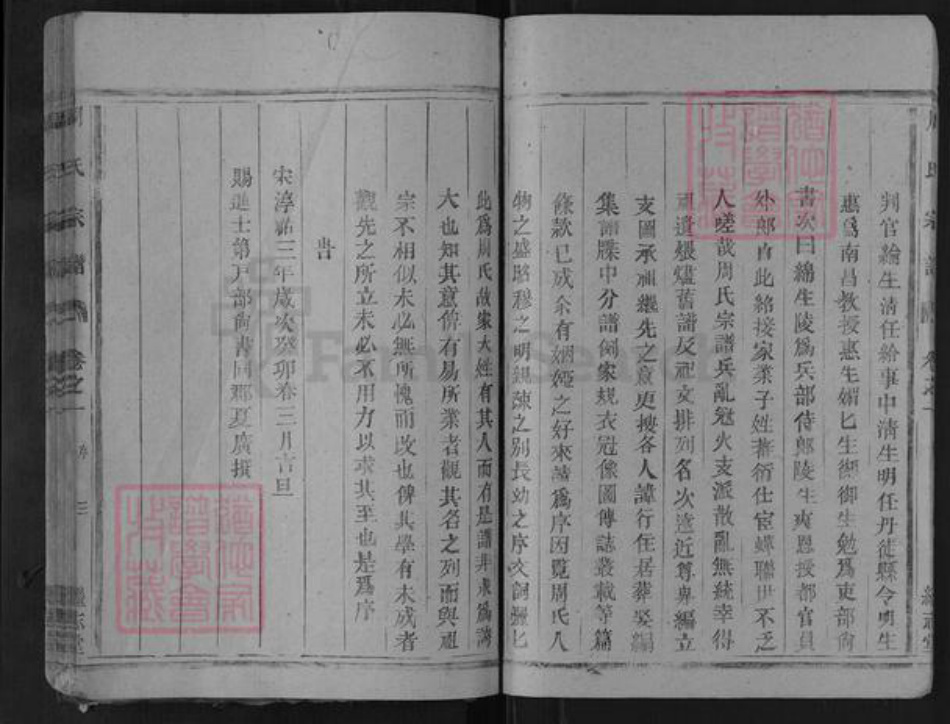 判官綸生清任給事中清生明任丹徒縣令明生
惠爲南昌教授惠生媚匕生御御生勉爲吏部尙
書次曰綿生陵爲兵部侍郎陵生爽恩授都官員
外郎自此絡接家業子姓蕃衍仕宦蟬聯世不乏
人嗟哉周氏宗譜兵亂冦火支派散亂無統幸得
遺煨爐舊譜反祀文排列名次遠近尊卑編立
支圖承祧繼先之意更搜各人諱行住居葬娶編
集譜牒中分譜例家規衣冠像圖傳誌叢載等篇
條款已成余有姻婭之好來請爲序因覧周氏人
物之盛昭穆之明親疎之別長幼之序文詞
此爲周氏故家大姓有其人而有是譜非求爲誇
大也知其意俾有易所業者觀其名之列而與祖
宗不相似未必無所愧而改也俾其學有未成者
觀先之所立未必不用力以求其至也是爲序
旹
宋淳祐三年歲次癸卯春三月吉旦
賜進士第戸部尙書同郡夏廣撰
周氏宗譜 卷之一 序 三
FamilySearch